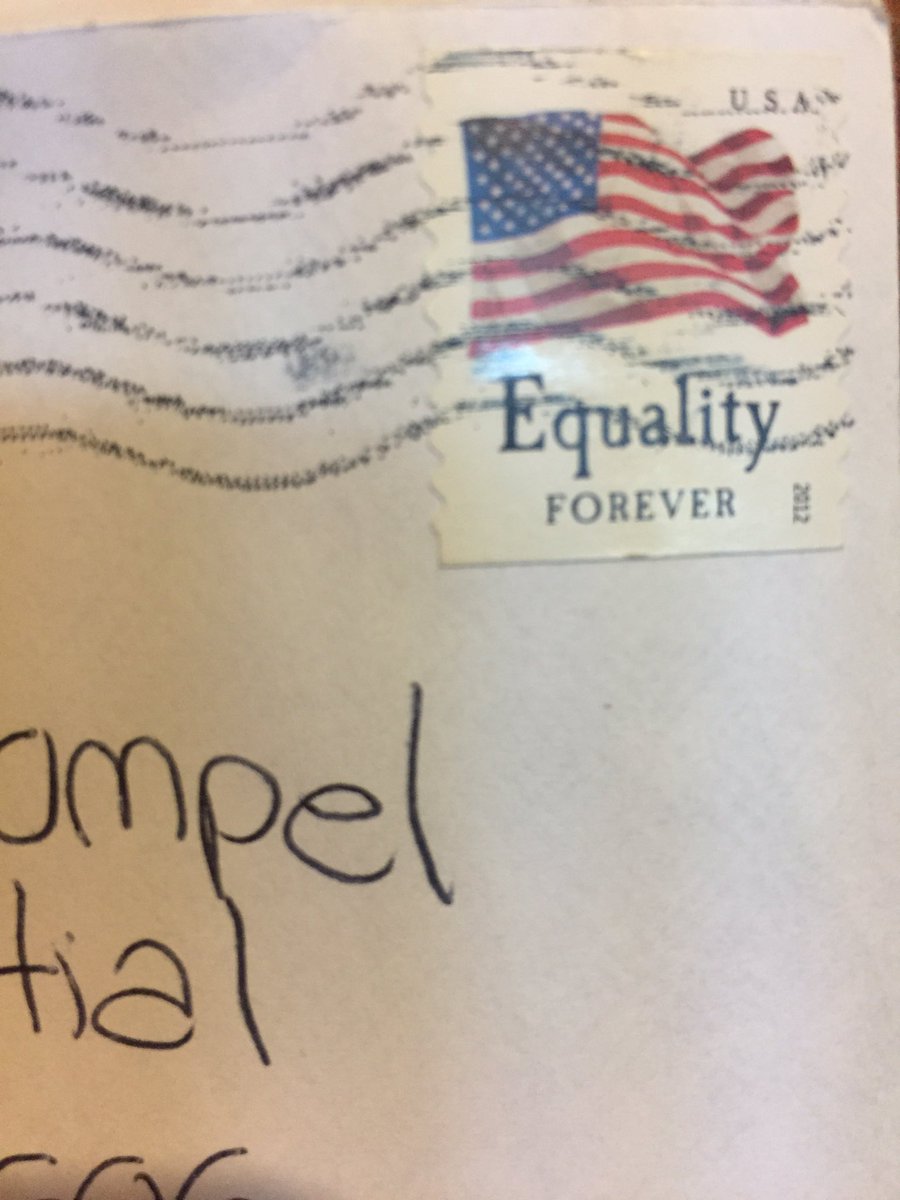 U.S.A.
Equality
FOREVER
2012
ompel
tial